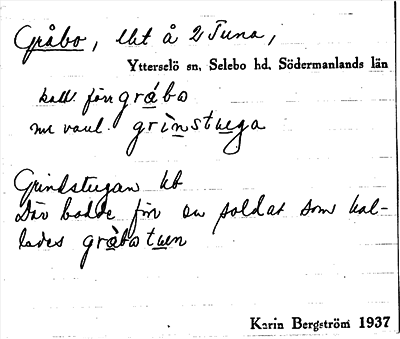 Gråbo, lht å 2 Tuna,
Ytterselö sn, Selebo hd, Södermanlands län
kall. förr gråbo
nu vanl. grinstuga
Grindstugan kb
Där bodde förr en soldat som kal-
lades gråbotuen
Karin Bergström 1937